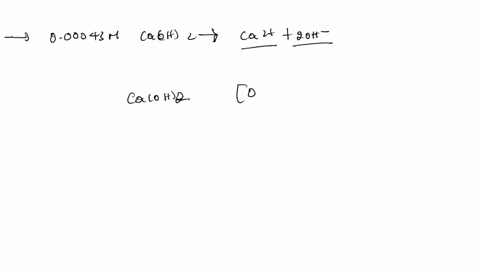 → 0.00043M Ca(OH)2 → Ca2+ + 2OH-
Ca(OH)2 [O